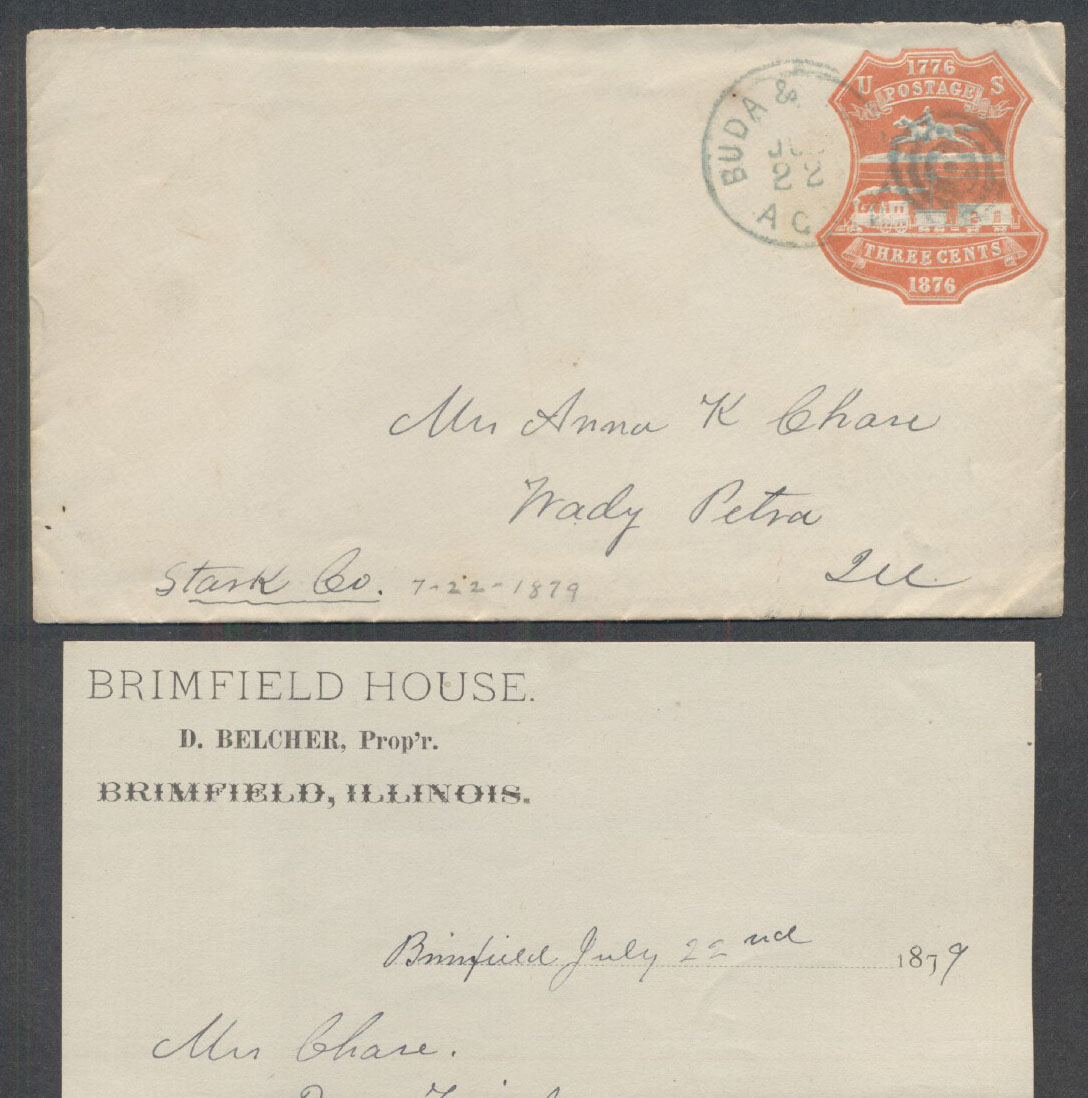 1776
U POSTAGE S
BUDA &
JUL
22
AG
THREE CENTS
1876
Mrs Anna K Chase
Wady Petra
Stark Co. 7-22-1879
Ill
BRIMFIELD HOUSE.
D. BELCHER, Prop'r.
BRIMFIELD, ILLINOIS.
Brimfield July 22nd 1879
Mrs Chase.